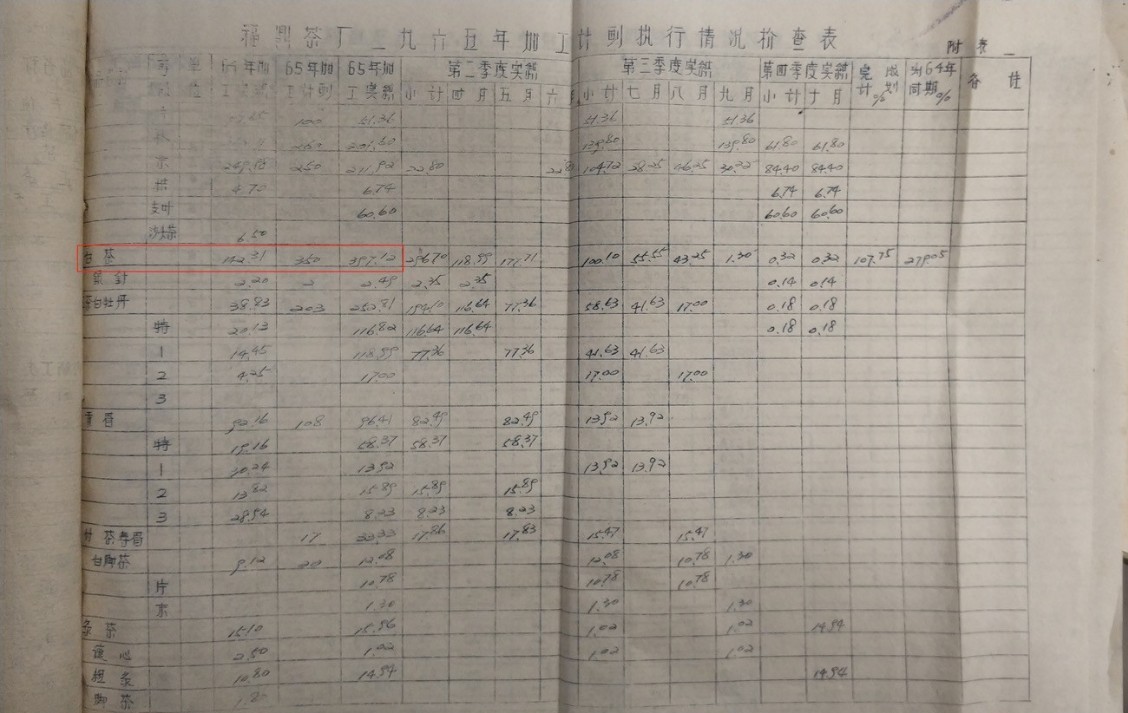 福鼎茶厂一九六五年加工计划执行情况检查表
附表一
64年加工实绩 65年加工计划 65年加工实绩 第二季度实绩 第三季度实绩 第四季度实绩 完成计划% 为64年同期% 备注
小计 四月 五月 六月 小计 七月 八月 九月 小计 十月
100 51.36 51.36 51.36
201.30 139.80 139.80 61.80 61.80
末 250 211.92 22.80 104.72 28.25 46.25 30.22 84.40 84.40
4.70 6.74 6.74 6.74
60.60 60.60 60.60
6.50
白茶 142.31 350 397.12 296.70 118.99 177.71 100.10 55.55 43.25 1.30 0.32 0.32 107.75 279.05
银针 2.20 2 2.49 2.35 2.35 0.14 0.14
白牡丹 38.83 203 252.81 194.10 116.64 77.36 58.63 41.63 17.00 0.18 0.18
特 20.13 116.82 116.64 116.64 0.18 0.18
1 14.45 118.99 77.36 77.36 41.63 41.63
2 4.25 17.00 17.00 17.00
3
贡眉 92.16 108 96.41 82.49 82.49 13.92 13.92
特 19.16 58.37 58.37 58.37
1 13.92 13.92 13.92
2 13.82 15.89 15.89 15.89
3 28.94 8.23 8.23 8.23
茶寿眉 17 33.33 17.86 17.83 15.47 15.47
白脚茶 9.12 20 12.08 12.08 10.78 1.30
片 10.78 10.78 10.78
末 1.30 1.30 1.30
茶 15.10 15.96 1.02 1.02 14.94
心 2.50 1.02 1.02 1.02
10.80 14.94 14.94
脚茶 1.80